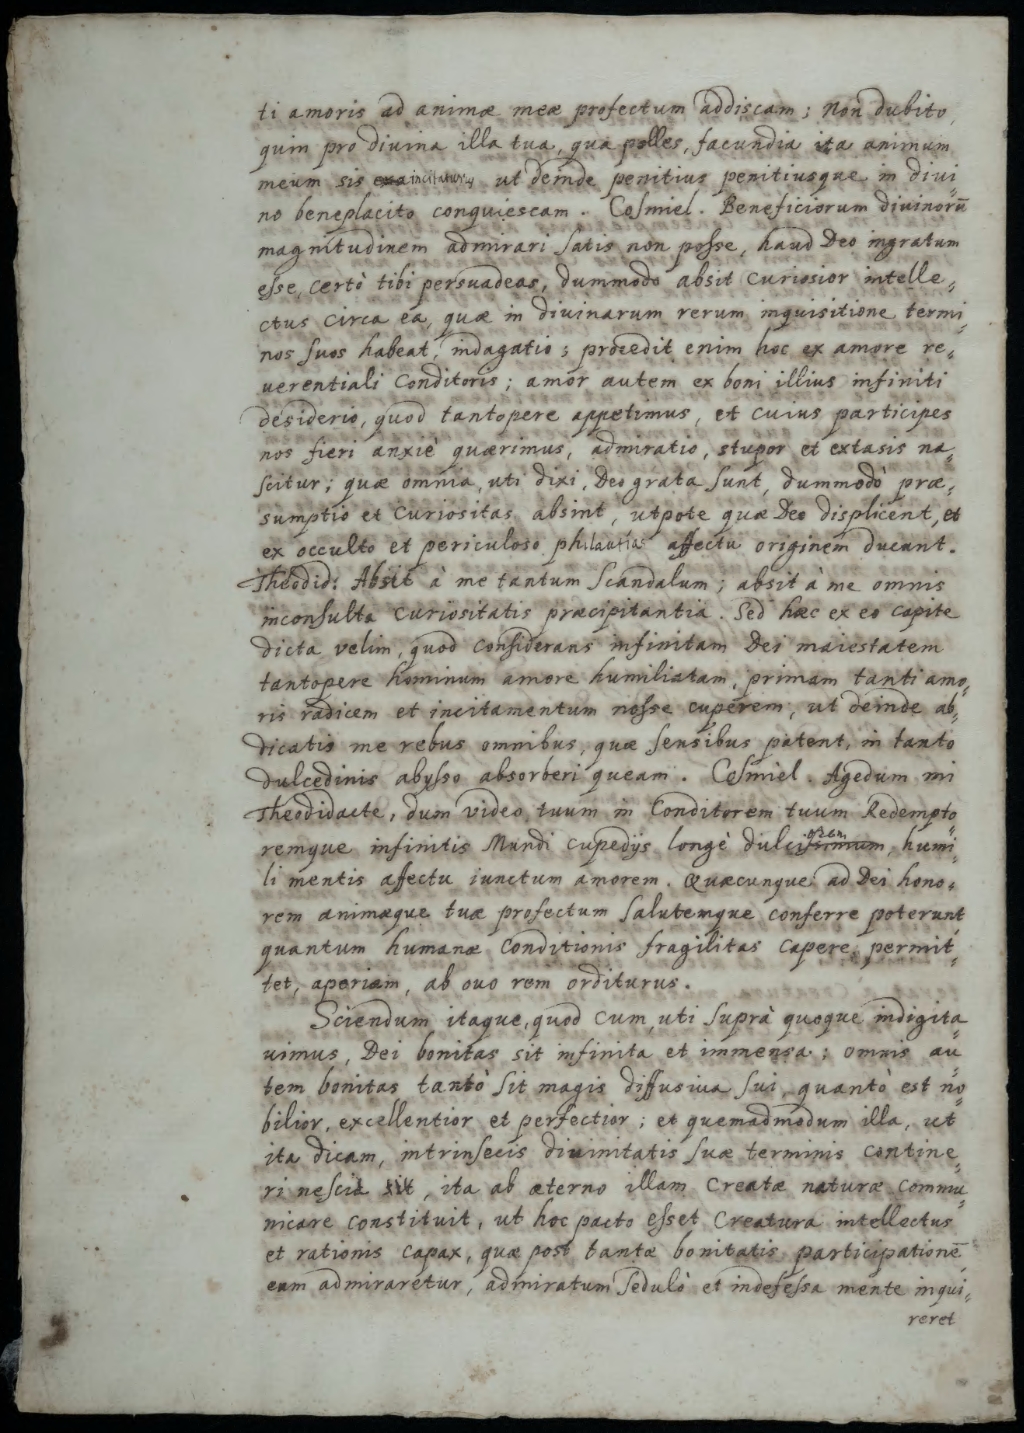 ti amoris ad animæ meæ profectum addiscam; non dubito,
quin pro divina illa tua, qua polles, facundia ita animum
meum sis incitaturus, ut deinde penitius penitiusque in divi
no beneplacito conquiescam. Cosmiel. Beneficiorum divinorū
magnitudinem admirari satis non posse, haud Deo ingratum
esse, certò tibi persuadeas, dummodo absit curiosior intelle,
ctus circa ea, quæ in divinarum rerum inquisitione termi,
nos suos habeat, indagatio; procedit enim hoc ex amore re,
verentiali Conditoris; amor autem ex boni illius infiniti
desiderio, quod tantopere appetimus, et cuius participes
nos fieri anxiè quærimus, admiratio, stupor et extasis na,
scitur; quæ omnia, uti dixi, Deo grata sunt, dummodò præ,
sumptio et curiositas absint, utpote quæ Deo displicent, et
ex occulto et periculoso philautias affectu originem ducant.
Theodid: Absit à me tantum scandalum; absit à me omnis
inconsulta curiositatis præcipitantia. Sed hæc ex eo capite
dicta velim, quod considerans infinitam Dei maiestatem
tantopere hominum amore humiliatam, primam tanti amo,
ris radicem et incitamentum nosse cuperem, ut deinde ab,
dicatis me rebus omnibus, quæ sensibus patent, in tanto
dulcedinis abysso absorberi queam. Cosmiel. Agedum mi
Theodidacte, dum video tuum in Conditorem tuum Redempto,
remque infinitis Mundi cupedijs longè dulciorem, humi,
li mentis affectu iunctum amorem. Quæcunque ad Dei hono,
rem animæque tuæ profectum salutemque conferre poterunt,
quantum humanæ Conditionis fragilitas capere permit,
tet, aperiam, ab ovo rem orditurus.
Sciendum itaque, quod cum, uti suprà quoque indigita,
uimus, Dei bonitas sit infinita et immensa; omnis au
tem bonitas tantò sit magis diffusiua sui, quantò est no,
bilior, excellentior et perfectior; et quemadmodum illa, ut
ita dicam, intrinsecis divinitatis suæ terminis contine,
ri nescia sit, ita ab æterno illam Creatæ naturæ commu,
nicare constituit, ut hoc pacto esset Creatura intellectus
et rationis capax, quæ post tantæ bonitatis participationē
eam admiraretur, admiratum sedulò et indefessa mente inqui,
reret